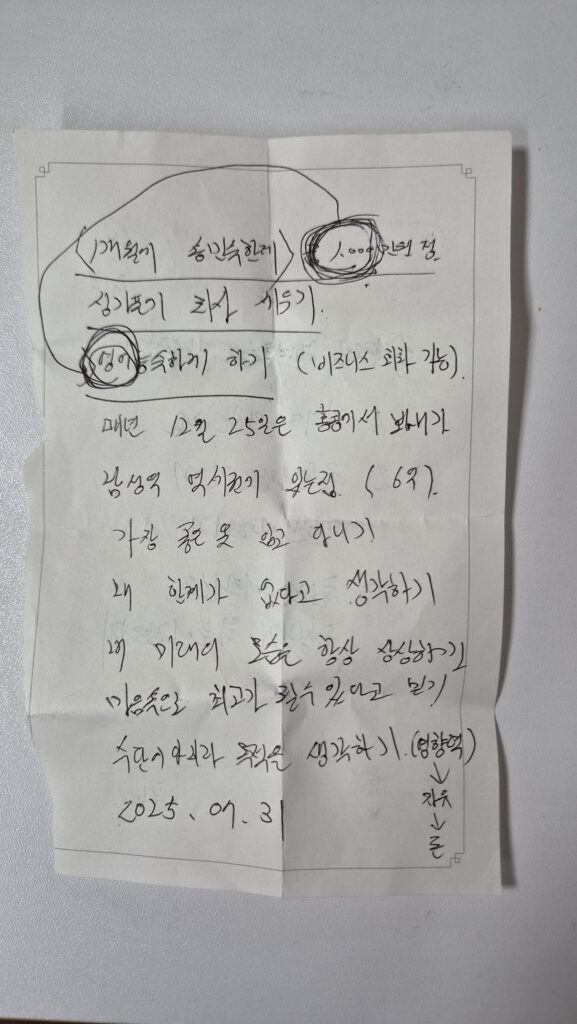 1개월에 1.000만원
회사 세우기.
영어능숙하게 하기 (비즈니스 회화 가능).
매년 12월 25일은 홍콩에서 보내기
있는집. (6억).
가장 좋은 옷 입고 다니기
내 한계가 없다고 생각하기
내 미래의 모습을 항상 상상하기
마음속으로 최고가 될수있다고 믿기
수단이 아니라 목적을 생각하기.(영향력)
↓
자유
↓
돈
2025. 07. 31